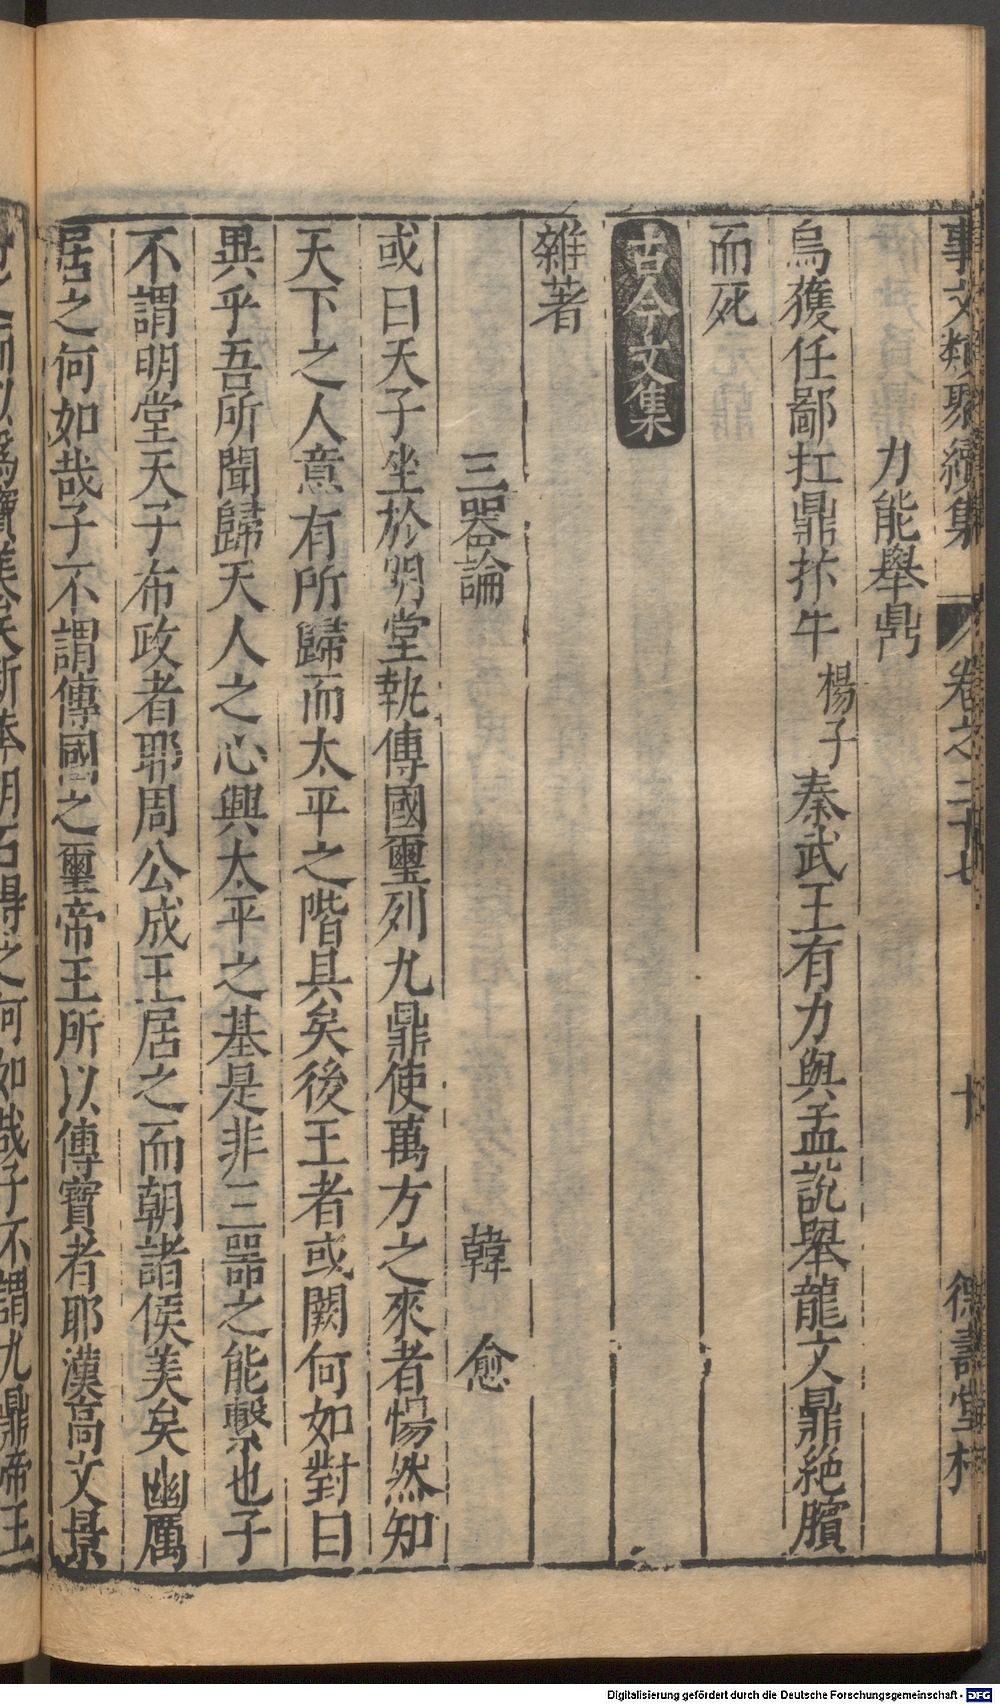 事文類聚續集 卷之二十七 十 德壽堂梓
力能舉鼎
烏獲任鄙扛鼎抃牛 楊子 秦武王有力與孟說舉龍文鼎絶臏
而死
古今文集
雜著
三器論 韓愈
或曰天子坐於明堂執傳國璽列九鼎使萬方之來者惕然知
天下之人意有所歸而太平之階具矣後王者或闕何如對曰
異乎吾所聞歸天人之心興太平之基是非三器之能繫也子
不謂明堂天子布政者耶周公成王居之而朝諸侯美矣幽厲
居之何如哉子不謂傳國之璽帝王所以傳寶者耶漢高文景
得之何如哉子不謂九鼎帝王
Digitalisierung gefördert durch die Deutsche Forschungsgemeinschaft - DFG